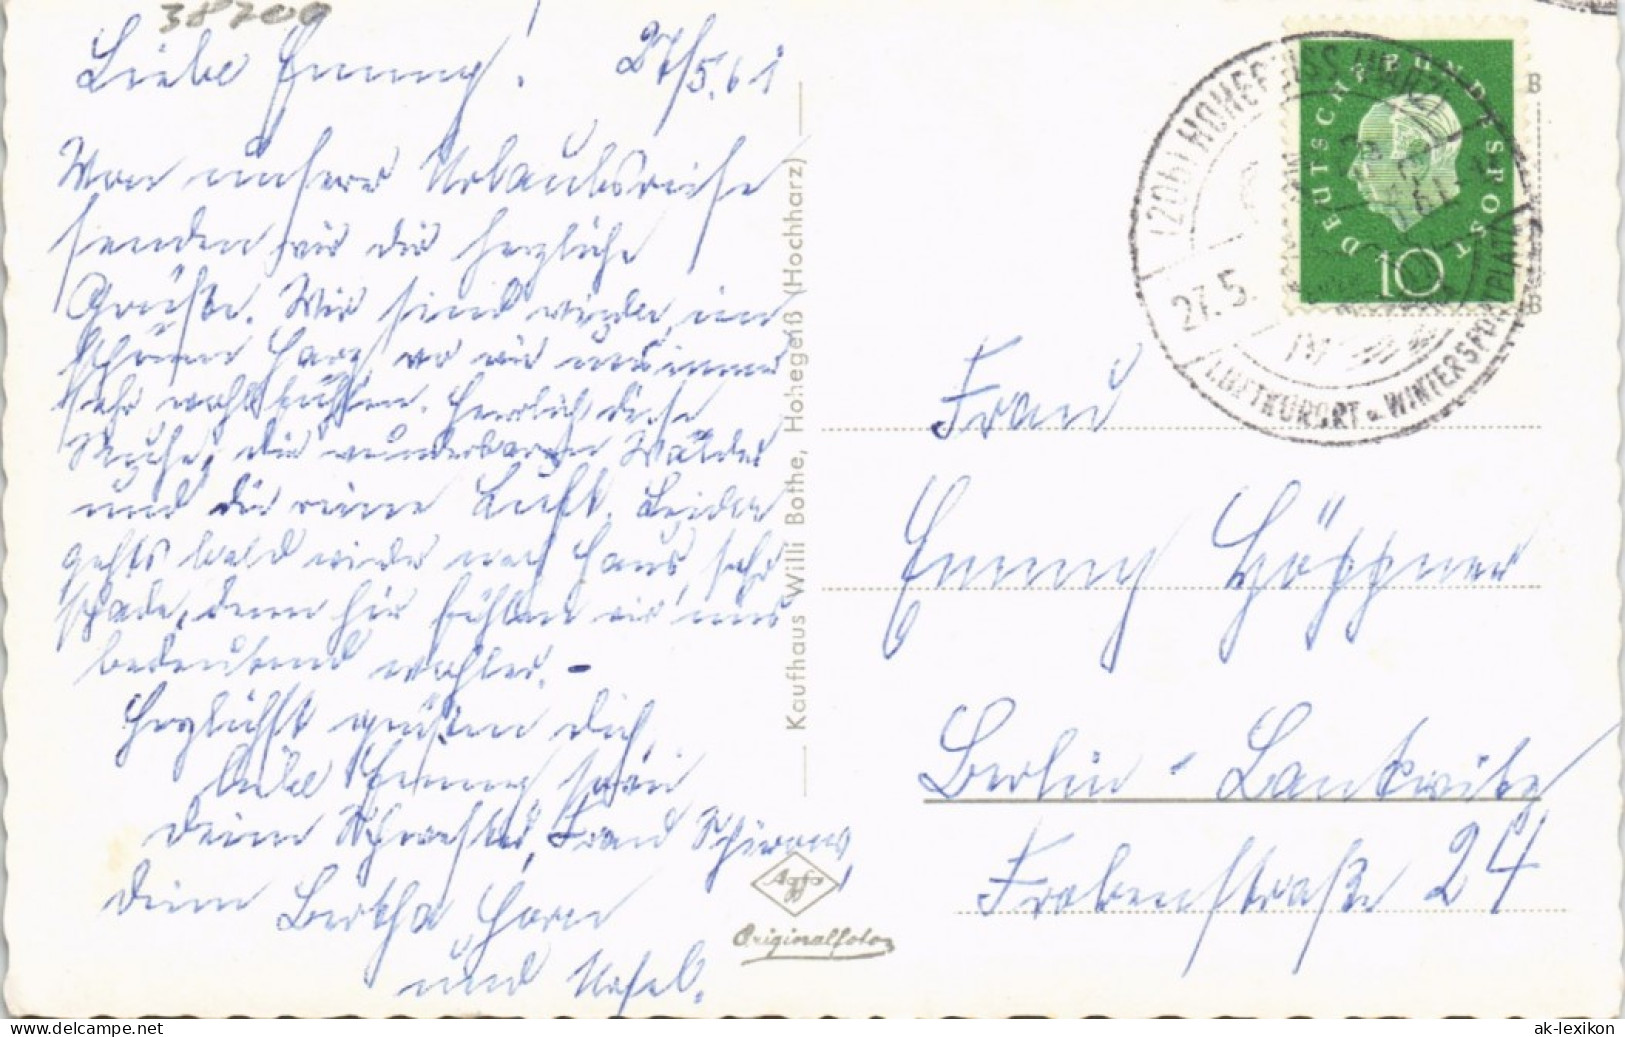 38700
Liebe Emmy! 27/5.61
Von unserer Urlaubsreise
senden wir dir herzliche
Grüße. Wir sind wieder im
schönen Harz wo wir uns immer
sehr wohl fühlen. Herrlich diese
Ruhe, die wunderbaren Wälder
und die reine Luft. Leider
gehts bald wieder nach Haus, sehr
schade, denn hier fühlen wir uns
bedeutend wohler. -
Herzlichst grüßen dich,
liebe Emmy
deine Schwester, Frau
deine Bertha Horn
und
Kaufhaus Willi Bothe, Hohegeiß (Hochharz)
Agfa
Originalfoto
(20b) HOHEGEISS (HARZ)
27.5.
LUFTKURORT u. WINTERSPORTPLATZ
DEUTSCHE BUNDESPOST
10
Frau
Emmy Höppner
Berlin-Lankwitz
Frobenstraße 24
ak-lexikon